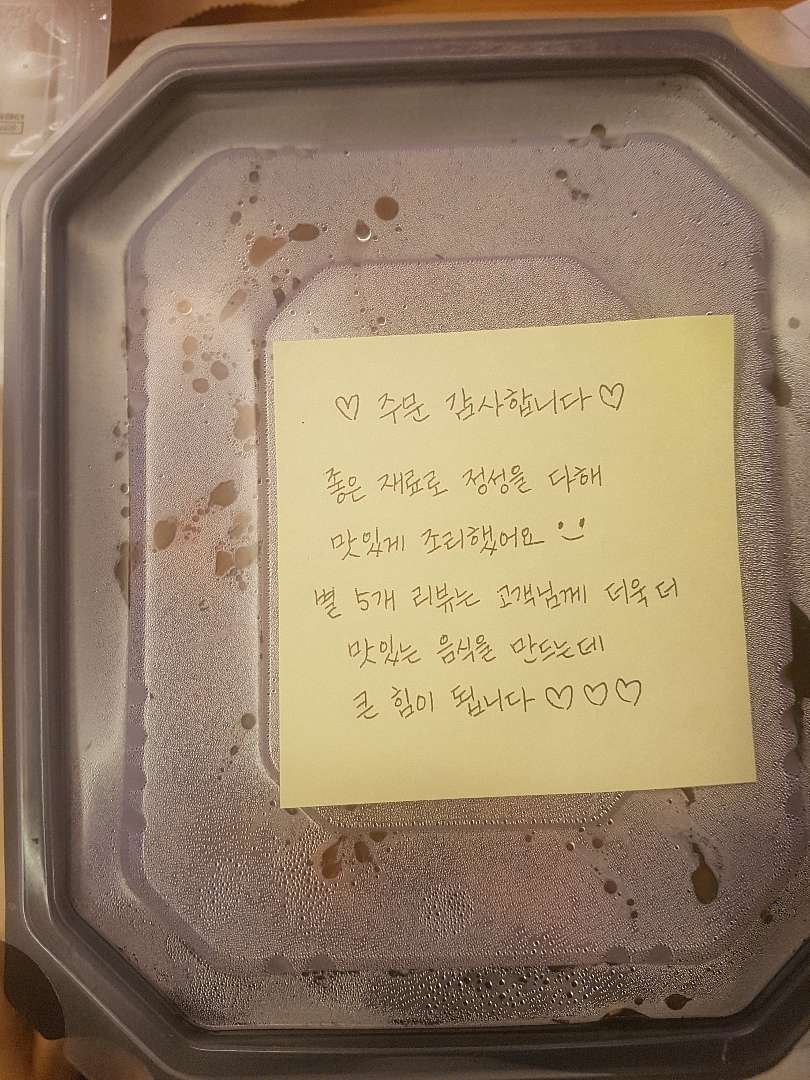 ♡ 주문 감사합니다 ♡
좋은 재료로 정성을 다해
맛있게 조리했어요 :)
별 5개 리뷰는 고객님께 더욱 더
맛있는 음식을 만드는데
큰 힘이 됩니다 ♡♡♡